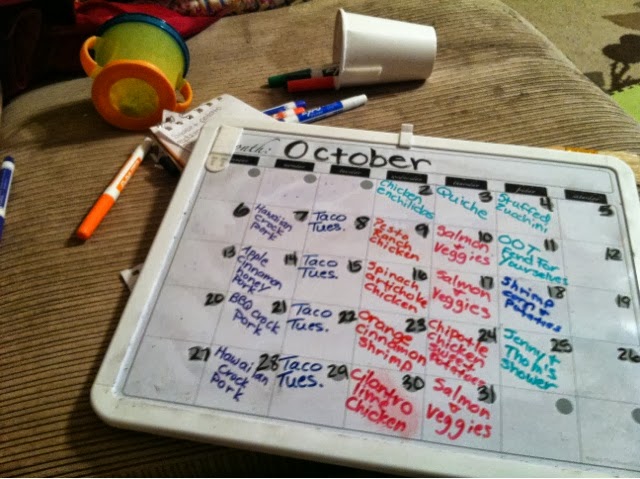 Month:
October
2
Chicken
enchiladas
3
Quiche
4
Stuffed
zucchini
5
6
Hawaiian
Crock
pork
7
Taco
Tues.
8
Pesto
ranch
chicken
9
Salmon
+
veggies
10
OOT
Fend For
yourselves
11
12
13
Apple
cinnamon
honey
pork
14
Taco
Tues.
15
Spinach
artichoke
chicken
16
Salmon
+
veggies
17
Shrimp
corn +
potatoes
18
19
20
BBQ crock
pork
21
Taco
Tues.
22
Orange
cinnamon
shrimp
23
Chipotle
chicken
sweet
potatoes
24
Jenny +
Thom's
shower
25
26
27
Hawaiian
Crock
pork
28
Taco
Tues.
29
Cilantro
lime
chicken
30
Salmon
+
veggies
31